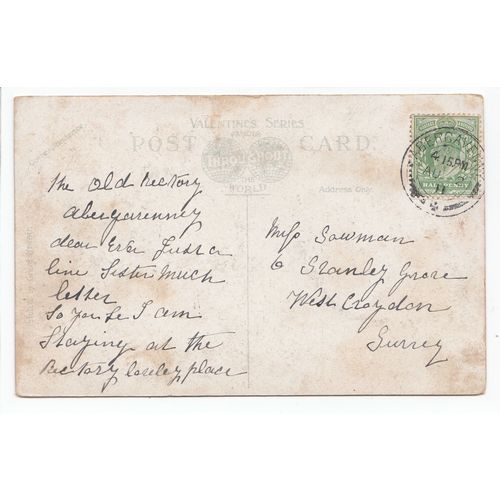 VALENTINE'S SERIES
FAMOUS
POST CARD.
THROUGHOUT
THE
WORLD
Address Only.
the Old Rectory
abergavenny
dear Just a
line Sister much
letter
So you se I am
Staying at the
Rectory loveley place
Miss Sowman
6 Stanley Grove
West Croydon
Surrey
ABERGAVENNY
4 15 PM
AU
11
HALFPENNY